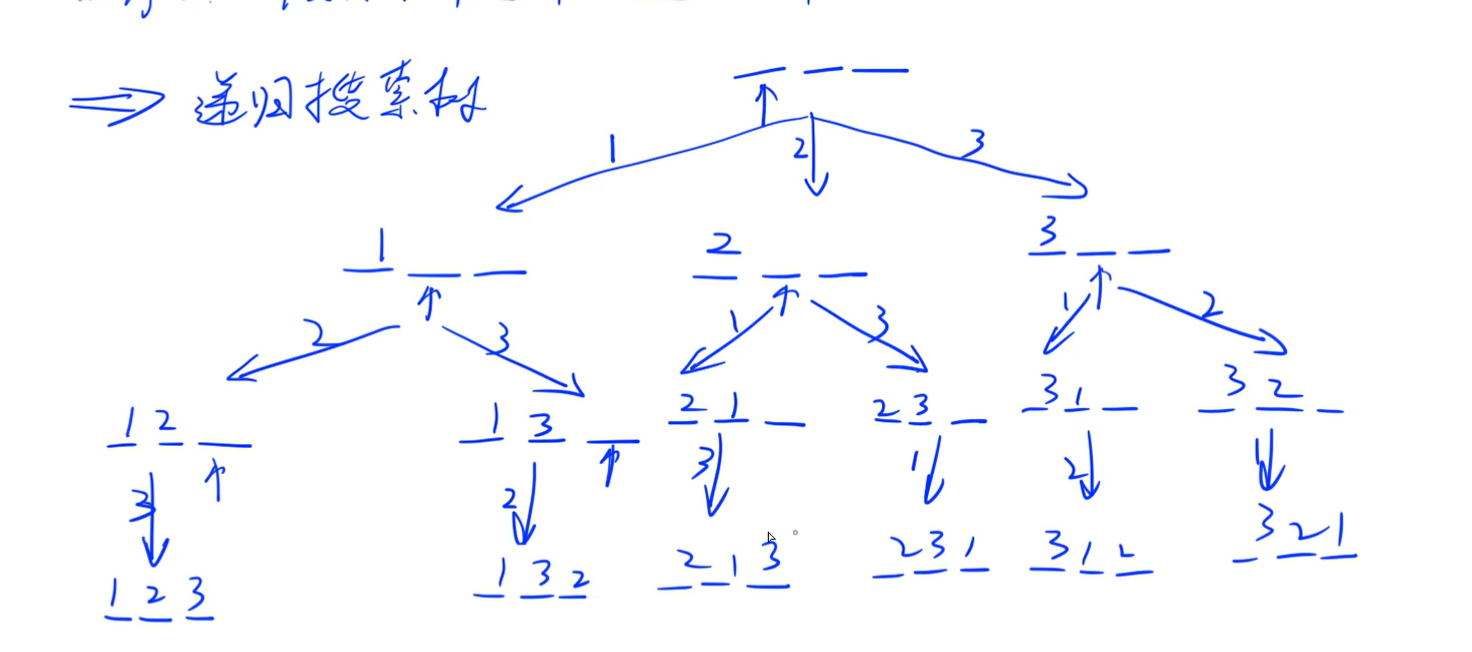 ⇒ 递归搜索树
1 2 3
1 2 3
2 3 1 3 1 2
1 2 1 3 2 1 2 3 3 1 3 2
3 2 3 1 2 1
1 2 3 1 3 2 2 1 3 2 3 1 3 1 2 3 2 1